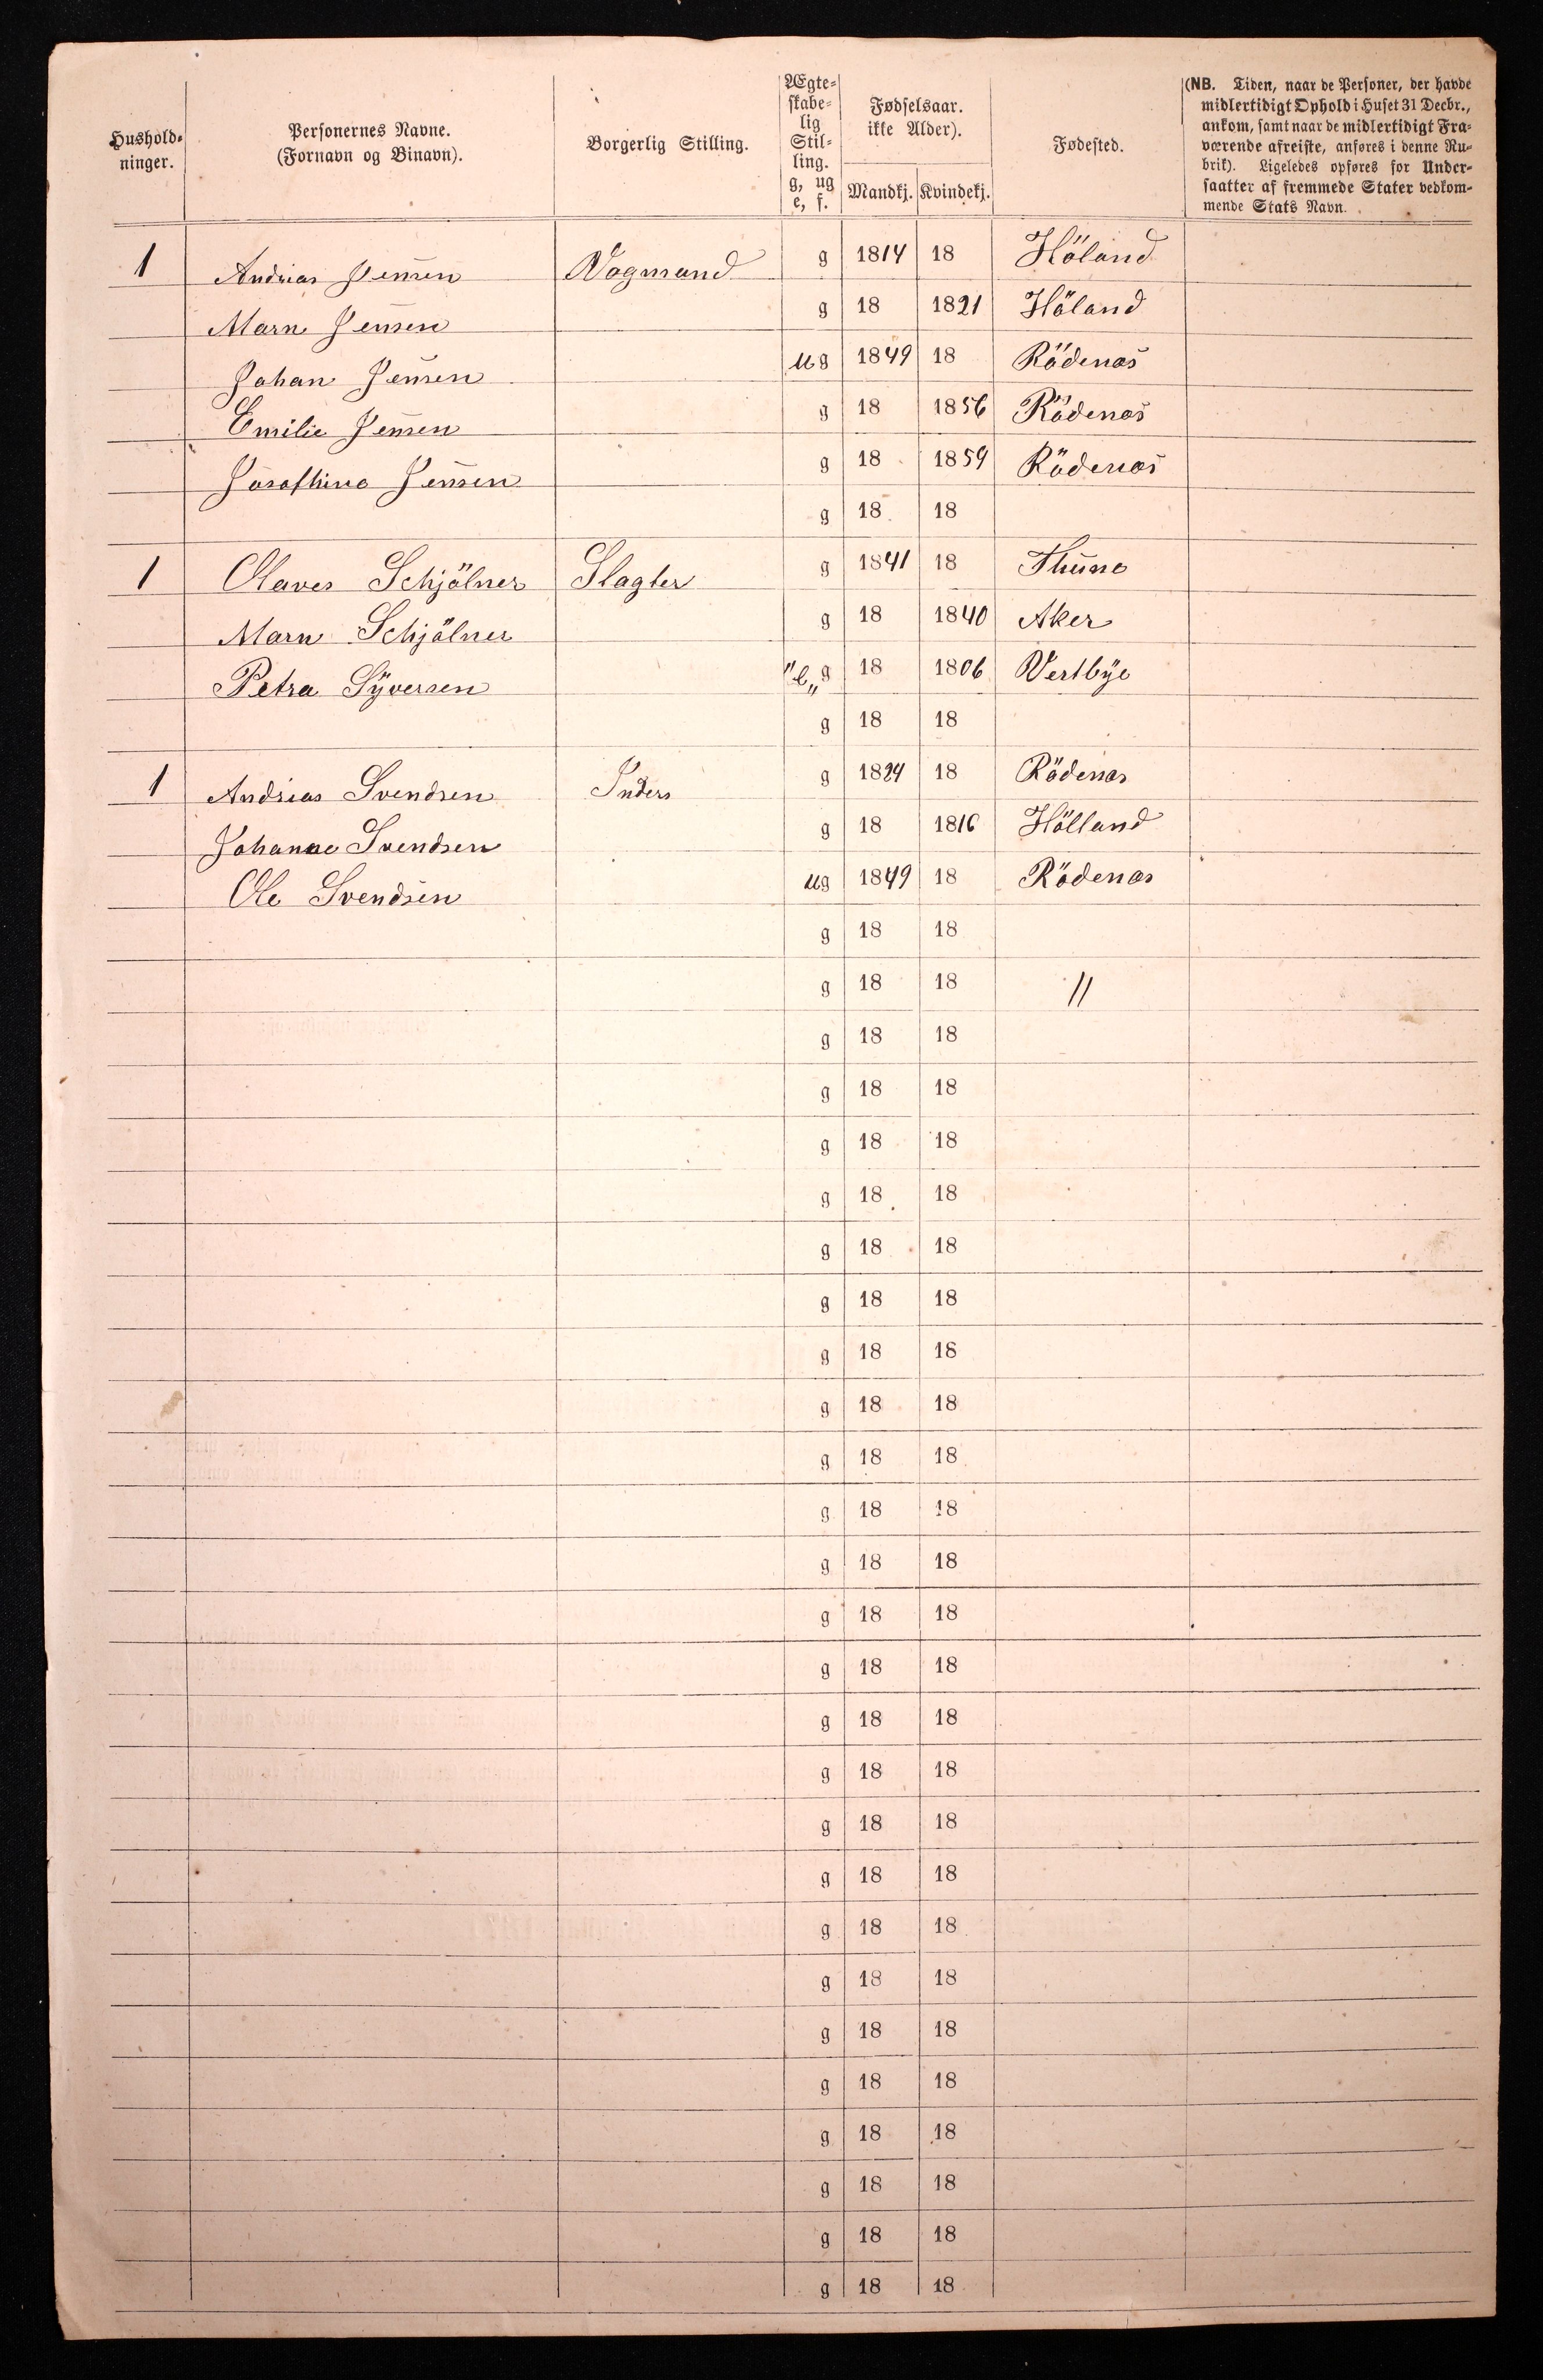 Hushold-
ninger.
Personernes Navne.
(Fornavn og Binavn).
Borgerlig Stilling.
Ægte-
skabe-
lig
Stil-
ling.
g, ug
e, f.
Fødselsaar.
ikke Alder).
Mandkj. Kvindekj.
Fødested.
(NB. Tiden, naar de Personer, der havde
midlertidigt Ophold i Huset 31 Decbr.,
ankom, samt naar de midlertidigt Fra-
værende afreiste, anføres i denne Ru-
brik). Ligeledes opføres for Under-
saatter af fremmede Stater vedkom-
mende Stats Navn.
1 Andrias Jensen Vogmand g 1814 18 Höland
Marn Jensen g 18 1821 Höland
Johan Jensen ug 1849 18 Rödenas
Emilie Jensen g 18 1856 Rödenas
Josefhine Jensen g 18 1859 Rödenas
g 18 18
1 Olaves Schjölner Slagter g 1841 18 Thune
Marn Schjölner g 18 1840 Aker
Petra Syversen "e" g 18 1806 Vestbye
g 18 18
1 Andrias Svendsen Inders g 1824 18 Rödenas
Johanne Svendsen g 18 1816 Hölland
Ole Svendsen ug 1849 18 Rödenas
g 18 18
g 18 18 //
g 18 18
g 18 18
g 18 18
g 18 18
g 18 18
g 18 18
g 18 18
g 18 18
g 18 18
g 18 18
g 18 18
g 18 18
g 18 18
g 18 18
g 18 18
g 18 18
g 18 18
g 18 18
g 18 18
g 18 18
g 18 18
g 18 18
g 18 18
g 18 18
g 18 18